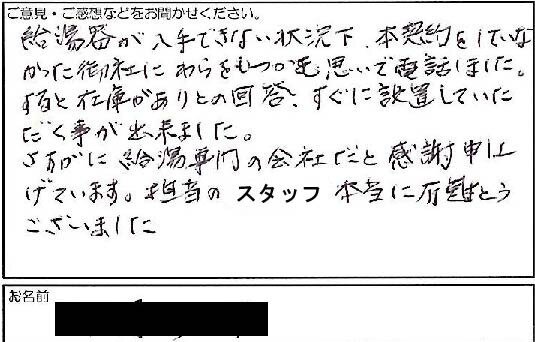 ご意見・ご感想などをお聞かせください。
給湯器が入手できない状況下、本契約をしていな
かった御社にわらをもつかむ思いで電話しました。
すると在庫がありとの回答、すぐに設置していた
だく事が出来ました。
さすがに給湯専門の会社だと感謝申し上
げています。担当の スタッフ 本当に有難とう
ございました
お名前